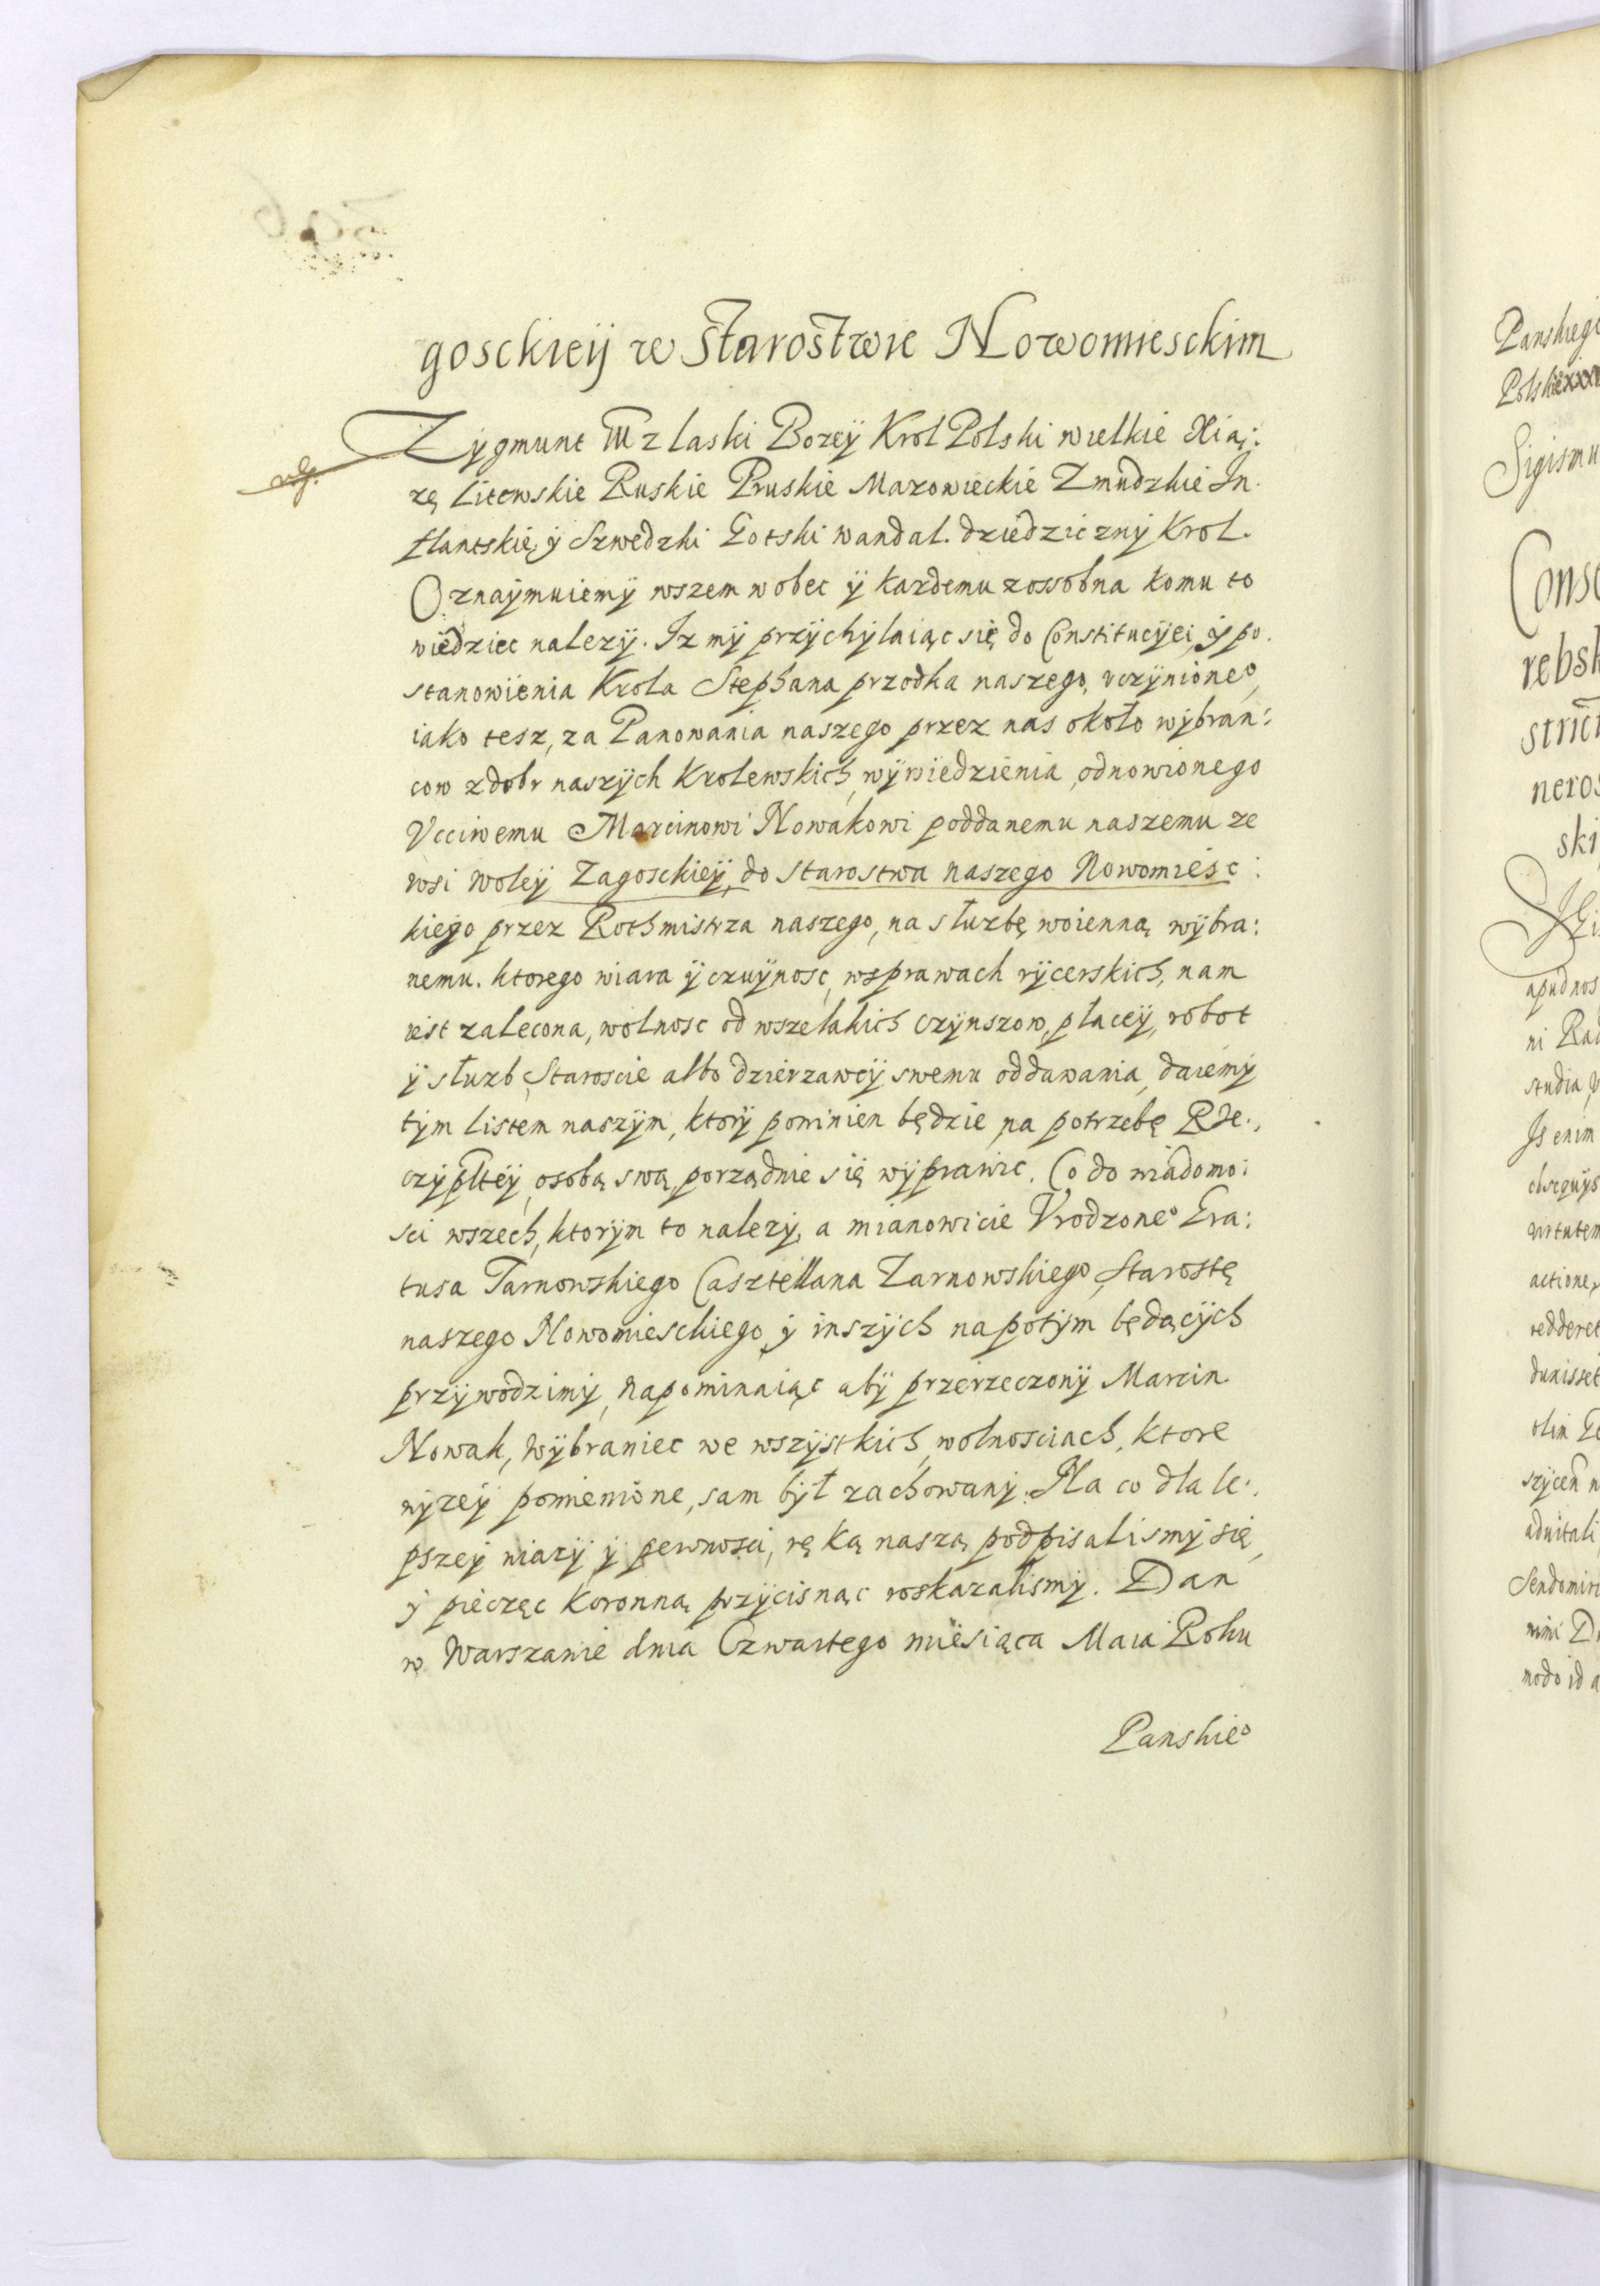 gosckieÿ w Starostwie Nowomiesckim
Zygmunt III z laski Bozeÿ Krol Polski wielkie Xią:
zę Litewskie Ruskie Pruskie Mazowieckie Zmudzkie In
flantskie, ÿ Szwedzki Gotski wandal. dziedzicznÿ Krol.
Oznaÿmuiemÿ wszem wobec ÿ kazdemu zossobna komu to
wiedziec nalezÿ. Iz mÿ przÿchÿlaiąc się do Constitucÿei, ÿ po.
stanowienia Krola Stephana przodka naszego, vczÿnione⁰,
iako tesz, za Panowania naszego przez nas około wÿbran:
cow z dobr naszÿch Krolewskich, wÿwiedzienia, odnowionego
Vcciwemu Marcinowi Nowakowi poddanemu naszemu ze
wsi Woleÿ Zagosckieÿ, do starostwa naszego Nowomiesc:
kiego przez Rothmistrza naszego, na służbę woienną wÿbra:
nemu. ktorego wiara ÿ czuÿnosc, wsprawach rÿcerskich, nam
iest zalecona, wolnosc od wszelakich czÿnszow, płaceÿ, robot
ÿ słuzb, Staroscie albo dzierzawcÿ swemu oddawania, daiemÿ
tÿm listem naszÿm, ktorÿ powinien będzie na potrzebę Rze.,
czÿplteÿ, osobą swą, porządnie się wÿprawic. Co do wiadomo:
sci wszech, ktorÿm to nalezÿ, a mianowicie Vrodzone⁰ Gra:
tusa Tarnowskiego Casztellana Zarnowskiego, Starostę
naszego Nowomiesckiego, ÿ inszÿch napotÿm będącÿch
przÿwodzimÿ, napominaiąc abÿ przerzeczonÿ Marcin
Nowak, wÿbraniec we wszÿstkich, wolnosciach, ktore
wÿzeÿ pomienione, sam bÿł zachowanÿ. Na co dla le:
pszeÿ wiarÿ ÿ pewnosci, ręką naszą podpisalismÿ się,
ÿ pieczęc koronną przÿcisnąc roskazalismÿ. Dan
w Warszawie dnia Czwartego miesiąca Maia Roku
Panskie⁰
Panskieg
Polskie
Sigismu
Cons
rebsk
strict
neros
ski
apud nos
ni Rad
studia
Is enim
obsequÿs
virtutem
actione
redderet
duxisset
olim
szÿcen
aduitali
Sendomiri
nimi
modo id a